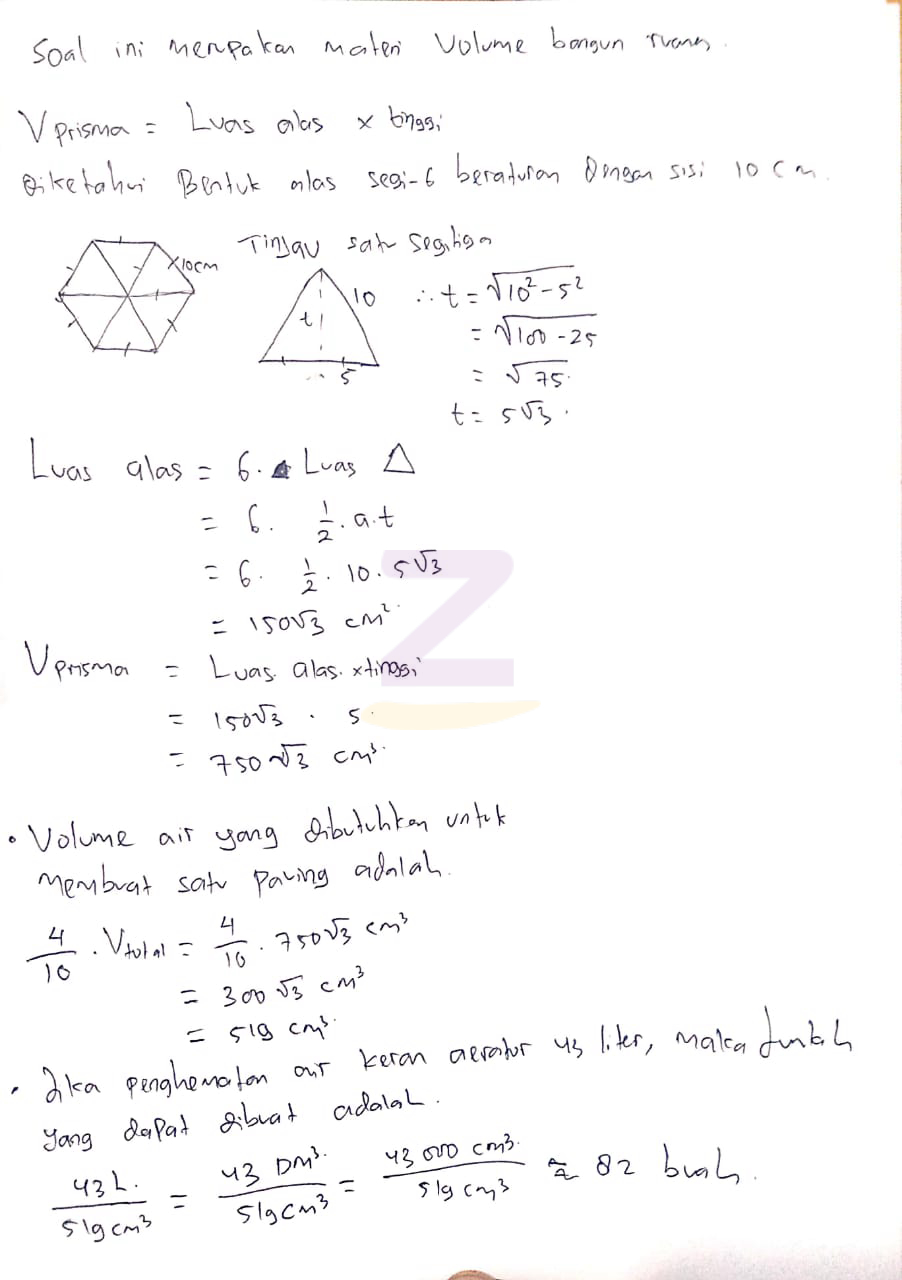 Soal ini merupakan materi Volume bangun ruang.
V prisma = Luas alas x tinggi
Diketahui Bentuk alas segi-6 beraturan dengan sisi 10 cm.
Tinjau satu segitiga
10cm
t
10
5
∴ t = √10² - 5²
= √100 - 25
= √75.
t = 5√3.
Luas alas = 6. Luas △
= 6. 1/2 . a.t
= 6. 1/2 . 10. 5√3
= 150√3 cm².
V prisma = Luas. alas. x tinggi
= 150√3 . 5.
= 750√3 cm³.
• Volume air yang dibutuhkan untuk
membuat satu paving adalah.
4/10 . Vtotal = 4/10 . 750√3 cm³
= 300√3 cm³
= 519 cm³.
• Jika penghematan air keran aerator 43 liter, maka Jumlah
yang dapat dibuat adalah.
43 L./519 cm³ = 43 DM³./519 cm³ = 43 000 cm³./519 cm³ ≈ 82 buah.
Z